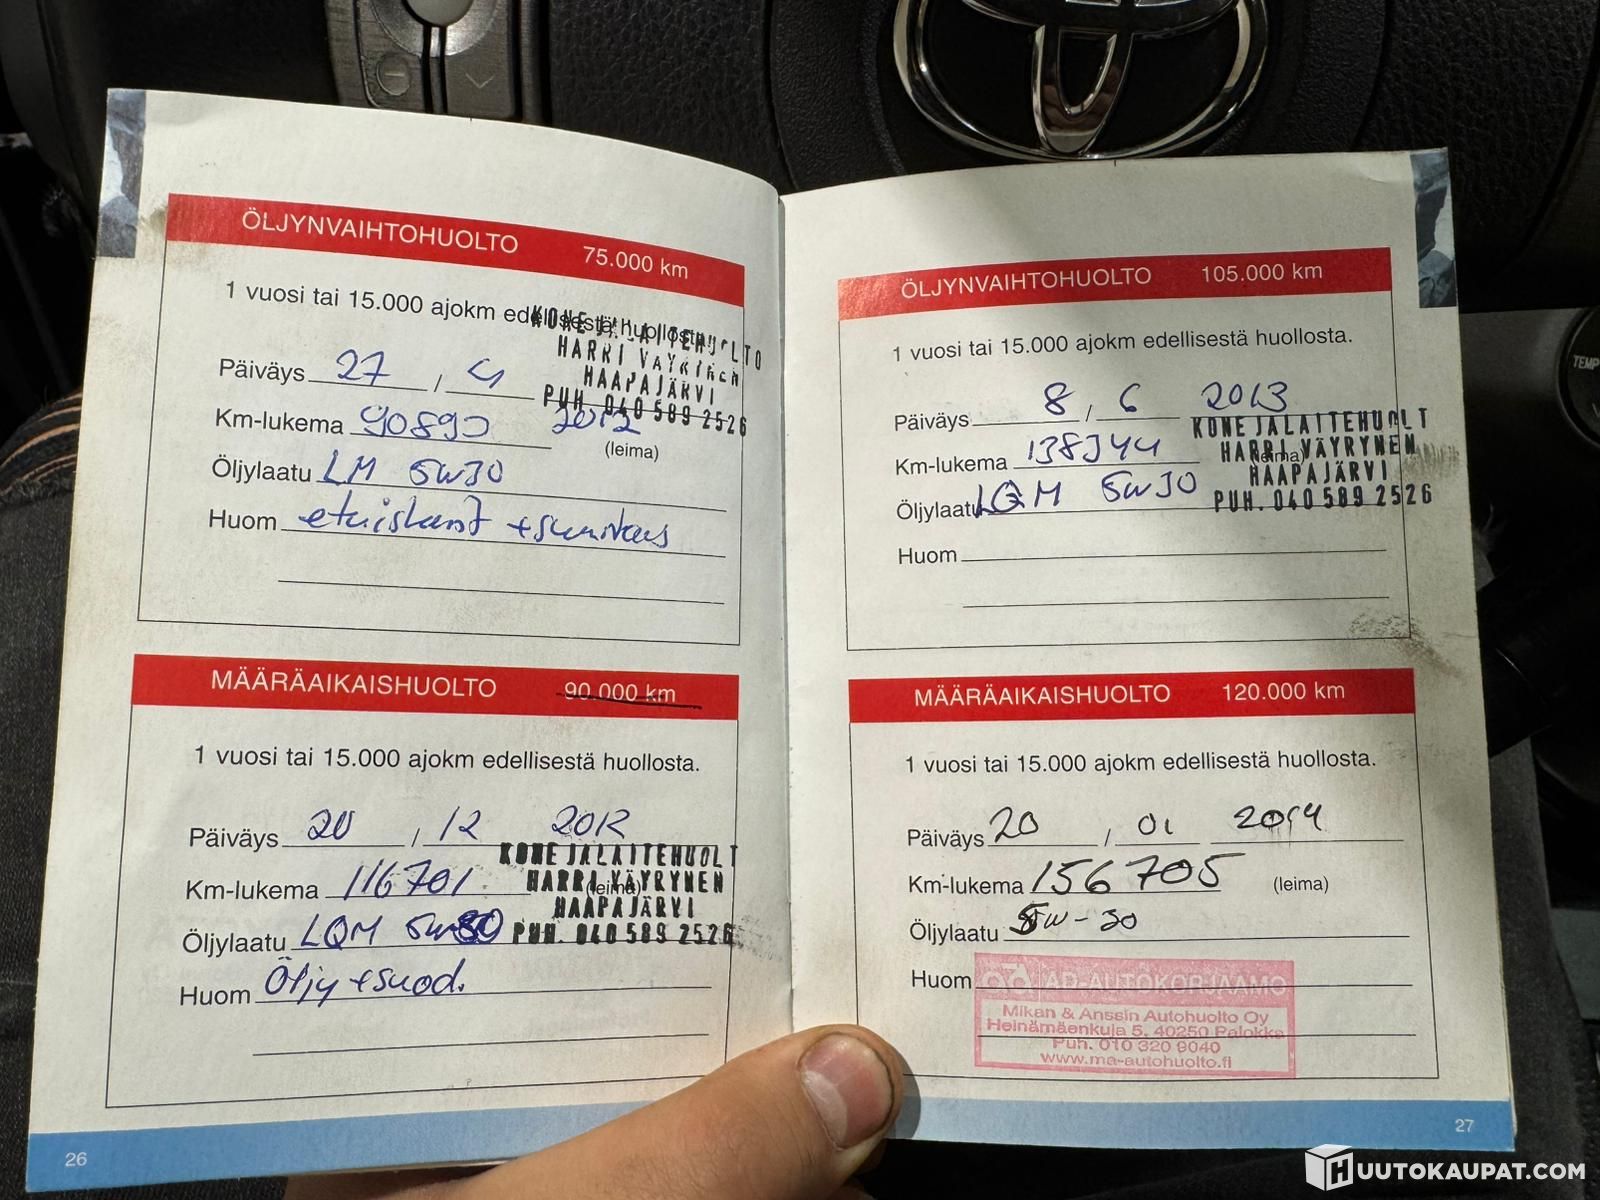 ÖLJYNVAIHTOHUOLTO 75.000 km
1 vuosi tai 15.000 ajokm edellisestä huollosta.
KONE JALAITEHUOLTO
HARRI VÄYRYNEN
HAAPAJÄRVI
PUH. 040 589 2526
Päiväys 27 / 4
2012
Km-lukema 90890
(leima)
Öljylaatu LM 5W30
Huom
MÄÄRÄAIKAISHUOLTO 90.000 km
1 vuosi tai 15.000 ajokm edellisestä huollosta.
Päiväys 20 / 12 2012
KONE JALAITEHUOLT
Km-lukema 116701
HARRI VÄYRYNEN
(leima)
HAAPAJÄRVI
Öljylaatu LQM 5W30
PUH. 040 589 2526
Huom Öljy + suod.
26
ÖLJYNVAIHTOHUOLTO 105.000 km
1 vuosi tai 15.000 ajokm edellisestä huollosta.
Päiväys 8 / 6 2013
KONE JALAITEHUOLT
Km-lukema 138344
HARRI VÄYRYNEN
(leima)
HAAPAJÄRVI
Öljylaatu LQM 5W30
PUH. 040 589 2526
Huom
MÄÄRÄAIKAISHUOLTO 120.000 km
1 vuosi tai 15.000 ajokm edellisestä huollosta.
Päiväys 20 / 01 2014
Km-lukema 156705
(leima)
Öljylaatu 5W-30
Huom
AD-AUTOKORJAAMO
Mikan & Anssin Autohuolto Oy
Heinämäenkuja 5, 40250 Palokka
Puh. 010 320 9040
www.ma-autohuolto.fi
27
TEMP
HUUTOKAUPAT.COM